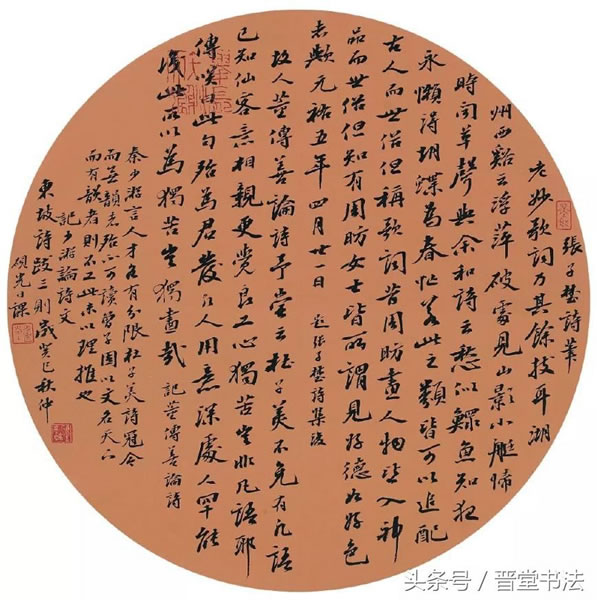 張子埜詩筆
老妙歌詞乃其餘技耳湖
州西谿云浮萍破處見山影小艇歸
時聞草聲與余和詩云愁似鰥魚知夜
永懶得胡蝶為春忙若此之類皆可以追配
古人而世俗但稱歌詞昔周昉畫人物皆入神
品而世俗但知有周昉女士皆所謂見好德如好色
者歟元祐五年四月廿一日 題張子埜詩集後
故人董傳善論詩予嘗云杜子美不免有凡語
已知仙客意相親更覺良工心獨苦豈非凡語耶
傳笑曰此句殆為君發凡人用意深處人罕能
識此所以為獨苦豈獨畫哉 記董傳善論詩
秦少游言人才各有分限杜子美詩冠今
而無韻者殆不可讀曾子固以文名天下
而有韻者則不工此未以理推也
記少游論詩文
東坡詩跋三則歲癸巳秋仲
硯光日課
头条号 / 晋堂书法